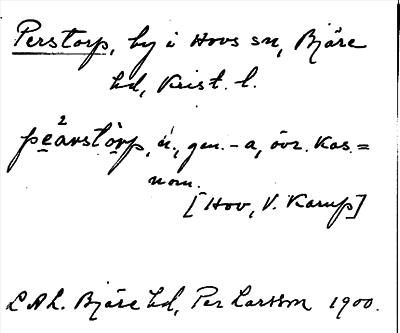 Perstorp, by i Hovs sn, Bjäre
hd, Krist. l.
pe²arstòrp, n., gen. -a, övr. kas. =
nom.
[Hov, V. Karup]
LAL. Bjäre hd, Per Larsson 1900.